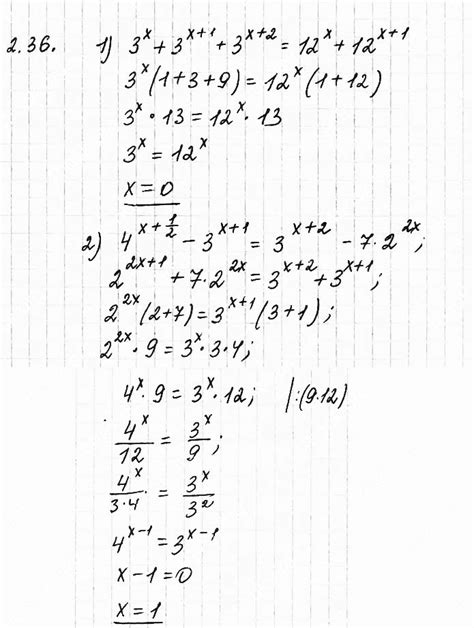 2.36. 1) 3^x + 3^{x+1} + 3^{x+2} = 12^x + 12^{x+1}
3^x(1+3+9) = 12^x(1+12)
3^x · 13 = 12^x · 13
3^x = 12^x
x = 0
2) 4^{x+\frac{1}{2}} - 3^{x+1} = 3^{x+2} - 7·2^{2x};
2^{2x+1} + 7·2^{2x} = 3^{x+2} + 3^{x+1};
2^{2x}(2+7) = 3^{x+1}(3+1);
2^{2x} · 9 = 3^x · 3 · 4;
4^x · 9 = 3^x · 12; |:(9·12)
\frac{4^x}{12} = \frac{3^x}{9};
\frac{4^x}{3·4} = \frac{3^x}{3^2}
4^{x-1} = 3^{x-1}
x - 1 = 0
x = 1